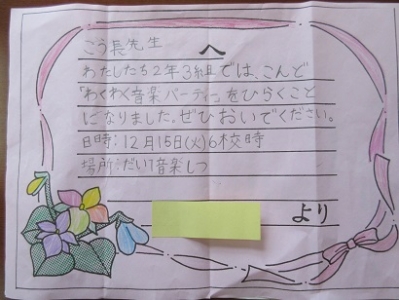 こう長先生 へ
わたしたち2年3組では、こんど
「わくわく音楽パーティー」をひらくこと
になりました。ぜひおいでください。
日時:12月15日(火)6校時
場所:だい1音楽しつ
より